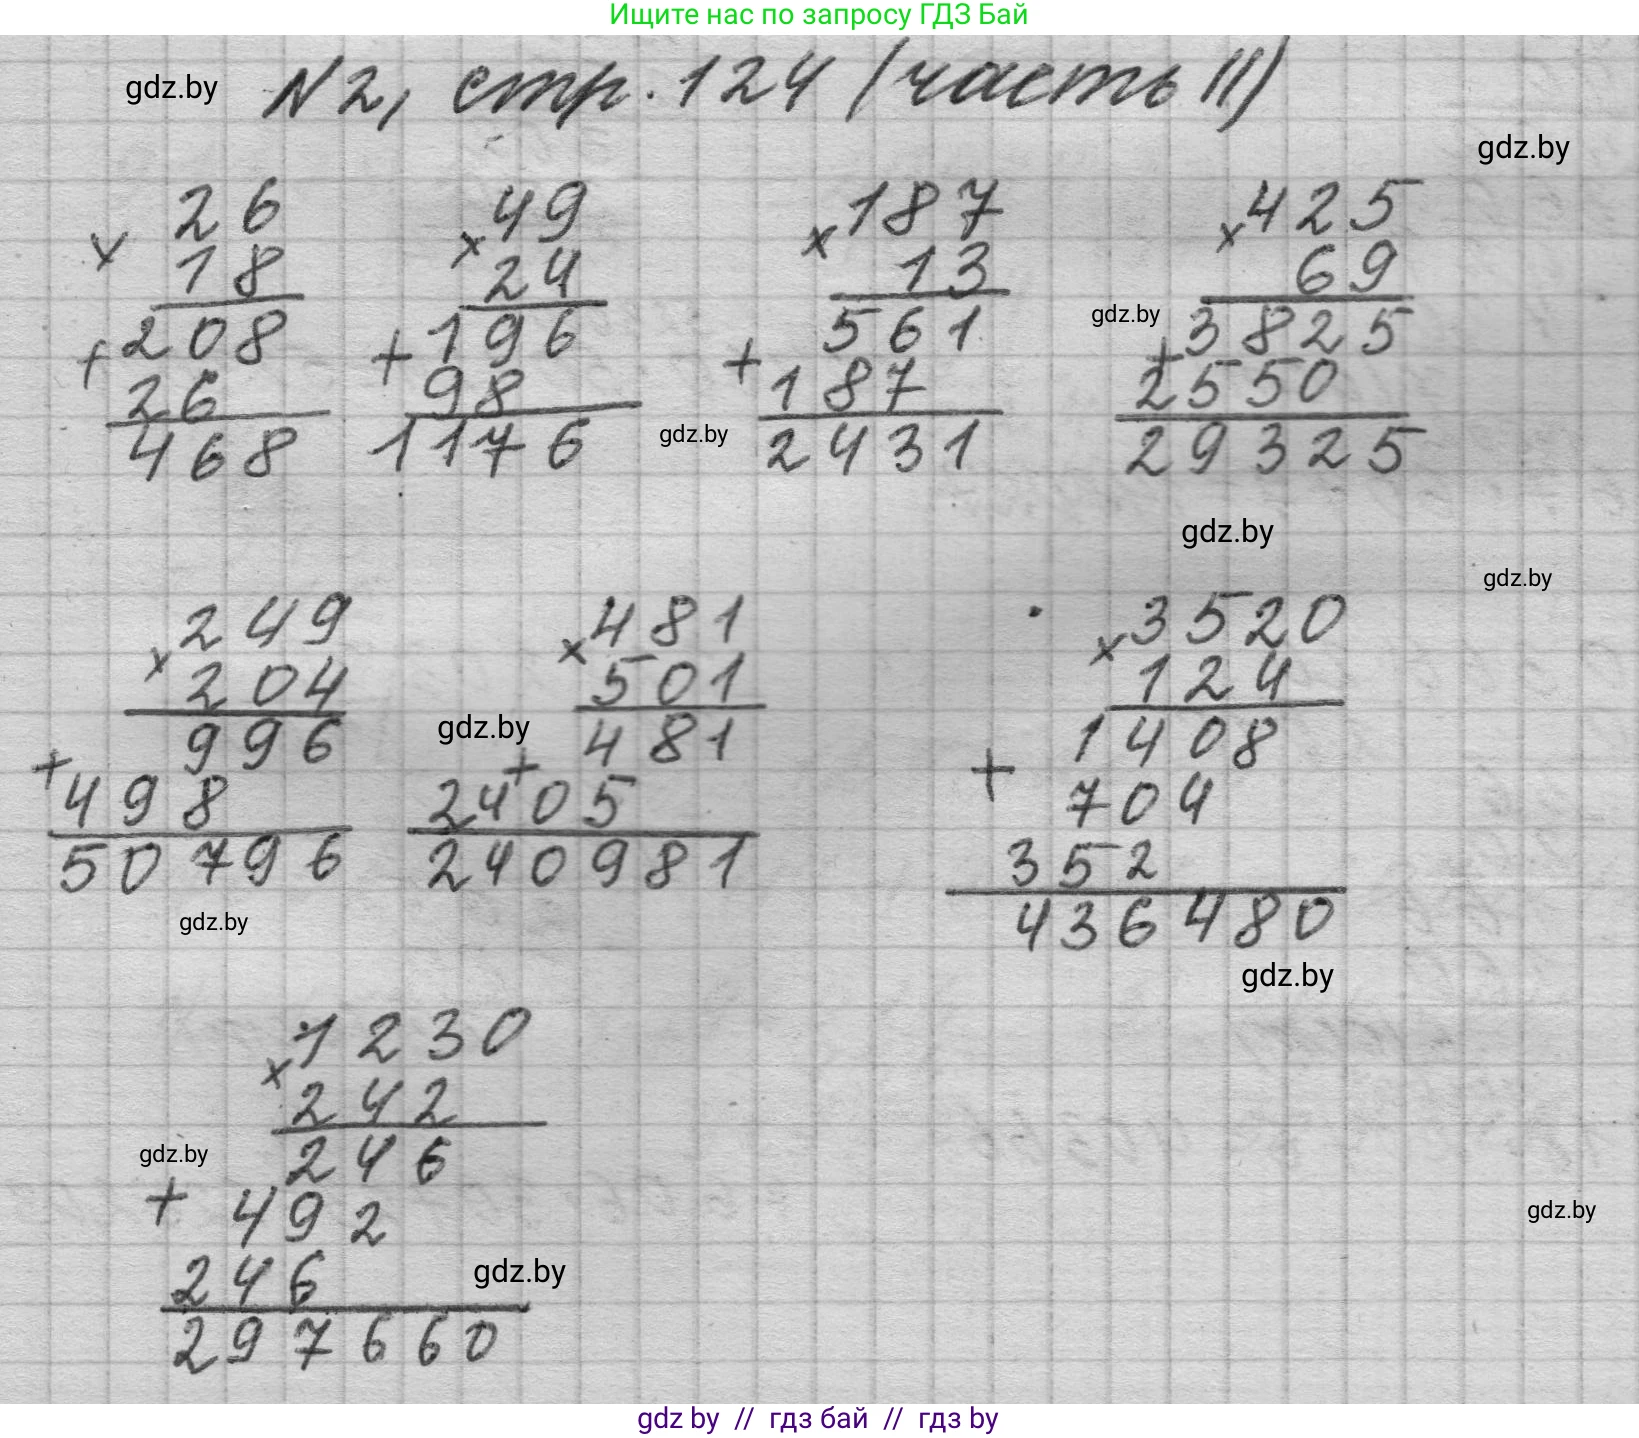 Ищите нас по запросу ГДЗ Бай
gdz.by
N2, стр. 124 (часть II)
gdz.by
× 26
18
+ 208
26
468
× 49
24
+ 196
98
1176
× 187
13
+ 561
187
2431
gdz.by
× 425
69
gdz.by
+ 3825
2550
29325
gdz.by
gdz.by
× 249
204
+ 996
498
50796
gdz.by
× 481
501
gdz.by
+ 481
2405
240981
× 3520
124
+ 1408
704
352
436480
gdz.by
× 1230
242
gdz.by
+ 246
492
246
297660
gdz.by
gdz.by
gdz by // гдз бай // гдз by